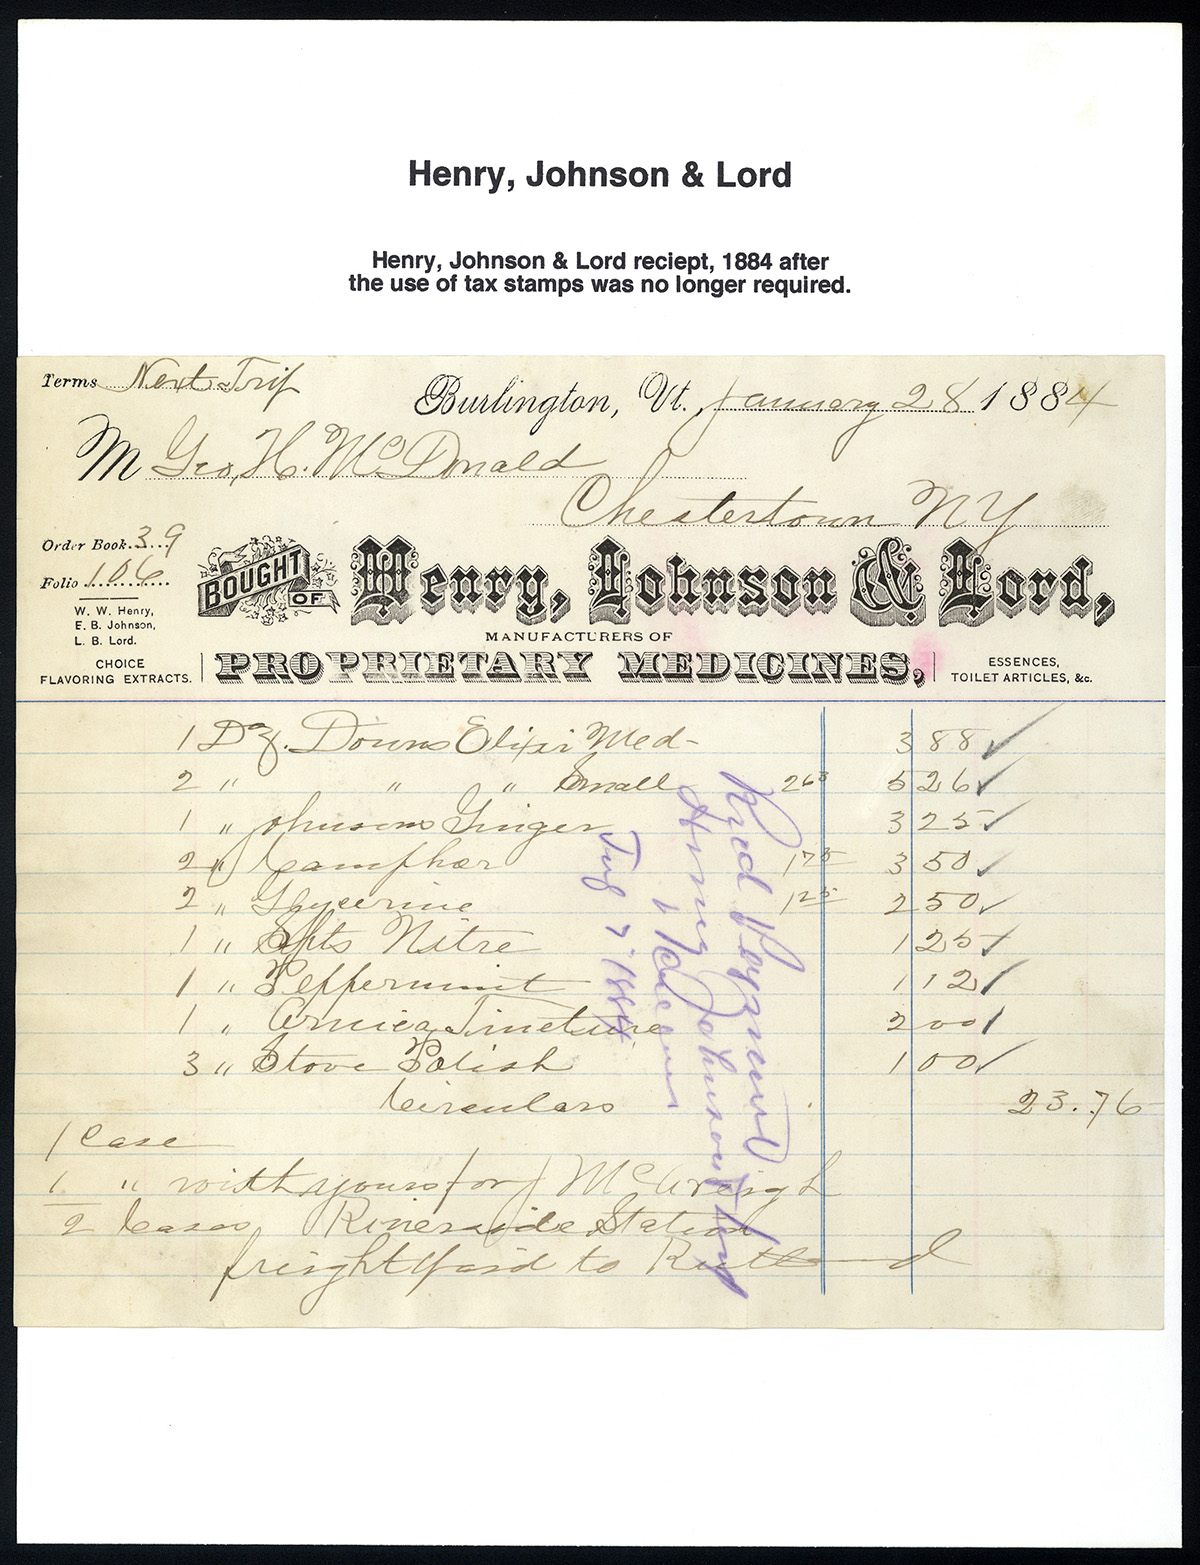 Henry, Johnson & Lord
Henry, Johnson & Lord reciept, 1884 after
the use of tax stamps was no longer required.
Terms Next Trip
Burlington, Vt., January 28 1884
M Geo, H. McDonald
Chestertown NY
Order Book. 39
Folio 106
W. W. Henry,
E. B. Johnson,
L. B. Lord.
CHOICE
FLAVORING EXTRACTS.
BOUGHT OF Henry, Johnson & Lord,
MANUFACTURERS OF
PROPRIETARY MEDICINES,
ESSENCES,
TOILET ARTICLES, &c.
1 Dz. Downs Elixir Med- 3 88
2 " " " Small 263 5 26
1 " Johnsons Ginger 3 25
2 " Camphor 175 3 50
2 " Glycerine 125 2 50
1 " Spts Nitre 1 25
1 " Peppermint 1 12
1 " Arnica Tincture 2 00
3 " Stove Polish 1 00
Circulars 23.76
1 Case
1 " with yours for J
2 Cases Riverside Station
freight paid to Rutland
Recd Payment
Henry Johnson & Lord
7" 1884